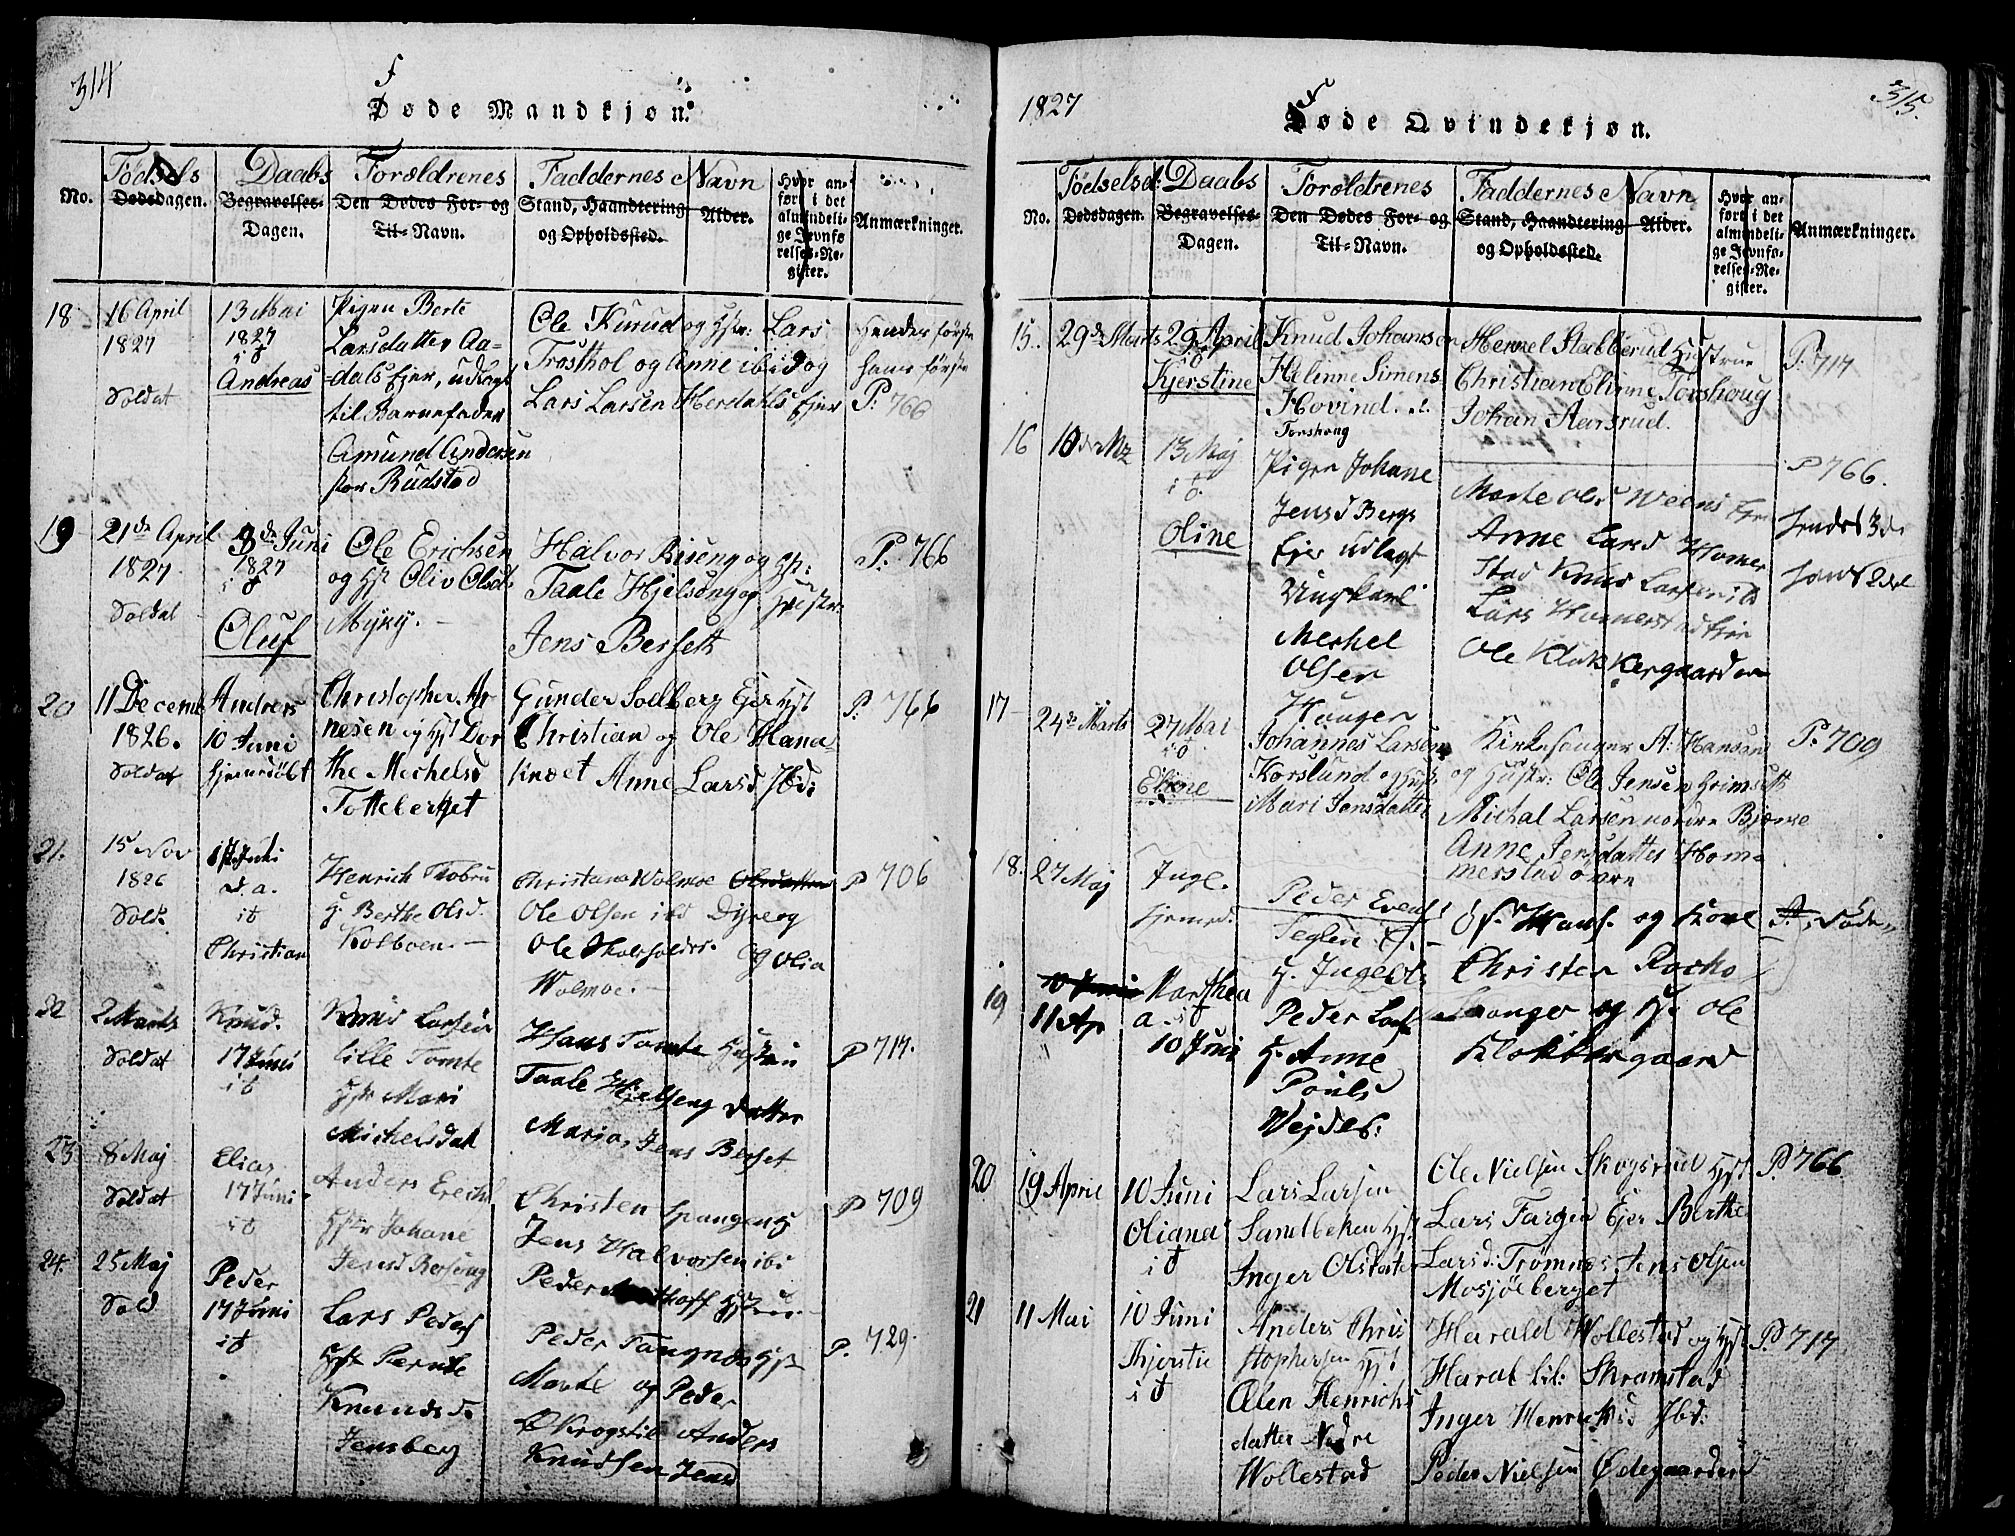 314
F
Døde Mandkjøn.
No.
Fødsels
Dødsdagen.
Daabs
Begravelses-
Dagen.
Forældrenes
Den Dødes For- og
Til-Navn.
Faddernes Navn
Stand, Haandtering
og Opholdssted.
Alder.
Hvor an-
ført i det
almindeli-
ge Jevnfø-
relses-Re-
gister.
Anmærkninger.
18
16 April
1827
Soldat
13 Mai
1827
Andreas
Pigen Berte
Larsdatter Aa-
dals Ejer, udlagt
til Barnefader
Amund Andersen
Rudstad
Ole Kurud og Hstr: Lars
Trosthol og Anne ibid og
Lars Larsen Herdahls Ejer
Hendes første
hans første
P. 766
19
21de April
1827
Soldat
3de Juni
1827
Oluf
Ole Erichsen
og Hst Oliv Olsd
Myky.
Halvor Biseng og Hst:
Taale Hjelseng og Hustr:
Jens Berseth
P. 766
20
11 Decemb
1826.
Soldat
Andreas
10 Juni
hjemedøbt
Christopher Ar
nesen og Hst Dor
the Mechelsd
Totteberget
Gunder Solberg Ejer Hst
Christian og Ole Flana-
Anne Larsd. Ibid:
P. 766
21.
15 Nov
1826
Sold.
Juni
d. a.
Christian
Henrich
H. Berthe Olsd.
Kolboen.
Christiana Wolmoe
Ole Olsen ibd Dyreng
Ole og Olia
Wolmoe.
P 706
22
2 Marts
Soldat
Knud.
17 Juni
Knud Larsen
lille Tomte
Hstr Mari
Michelsdat
Hans Tomte Hustru
Taale Hjelseng datter
Maria, Jens Berset
P 717.
23
8 Maj
Soldat
Elias
17 Juni
Anders Erichs
Hstr Johane
Jensd
Christen Spangeng
Jens Halvorsen ibd
Peder
P 709
24.
25 Maj
Sold
Peder
17 Juni
Lars Peders
Hst Pernte
Knudsd.
Jensberg
Peder Tangnes Hst
Marte og Peder
Krogstie Anders
Knudsen Jens
P. 729.
1827
315.
F
Døde Qvindekjøn.
No.
Fødselsd:
Dødsdagen.
Daabs
Begravelses-
Dagen.
Forældrenes
Den Dødes For- og
Til-Navn.
Faddernes Navn
Stand, Haandtering
og Opholdssted.
Alder.
Hvor an-
ført i det
almindeli-
ge Jevnfø-
relses-Re-
gister.
Anmærkninger.
15.
29de Marts
29 April
Kjerstine
Knud Johansen
Helinne Simens
Hovind.
Torshoug
Mekkel Stabberud Hustrue
Christian Elinne Torshoug
Johan Starsrud.
P. 717
16
10de Mz
13 Maj
Oline
Pigen Johane
Jensd Bergs
Ejer udlagt
Ungkarl
Merkel
Olsen
Hauger
Marte Olsd Weens Eje
Anne Larsd Homer
stad Knud Larsen ib
Lars Homerstad Ejer
Ole Klokkergaarden
P 766.
hendes 3de
hans 2det
17
24de Marts
27 Mai
Eline
Johannes Larsen
Korslund og Hustr
Mari Jensdatter
Kirkesanger A: Hansen
og Hustr: Ole Jensen Grimseth
Michal Larsen nordre Bjørke
Anne Jensdatter Hom-
merstad øvre
P. 709
18.
27 Maj
Inge.
hjemed.
Peder Evens
Teglen
H. Inge Ols
og Kone
P. Døde
19
10 Juni
11 Ap
Marthea
a.
10 Juni
Peder Lars
H. Anne
Pouls
Wejdes.
Christen Rocho
Hanger og Hst Ole
Klokkergaard
20
19 April
10 Juni
Oliana
Lars Larsen
Sandbeken Hst
Inger Olsdatter
Ole Nielsen Skogsrud Hst
Lars Fargen Ejer Berthe
Larsd: Trømnes, Jens Olsen
Mosjøeberget
P. 766
21
11 Mai
10 Juni
Kjerstie
Anders Chris
stophersen Hst
Olen Henrichs
datter Nedre
Wollestad
Harald Wollestad og Hst
Haral lil: Skramstad
Inger Henrichsd Ibd:
Peder Nielsen Ødegaarden
P. 717